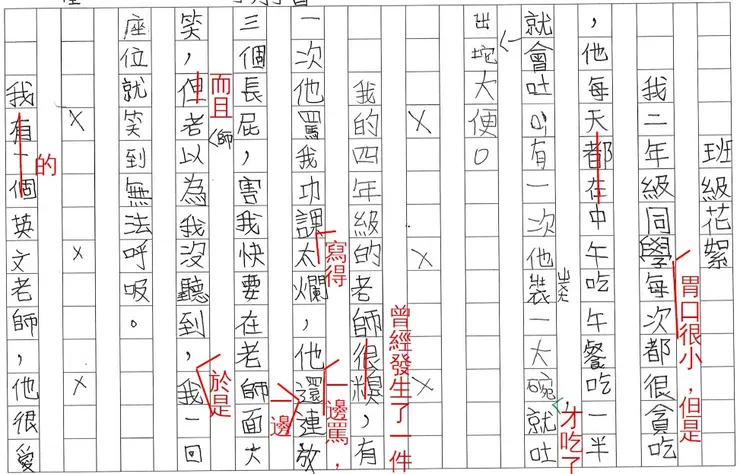 班級花絮
我二年級同學每次都很貪吃
胃口很小，但是
，他每天都在中午吃午餐吃一半
就會吐，有一次他裝一大碗就吐
才吃了
出坨大便。
我的四年級的老師很糗，有
曾經發生了一件
一次他罵我功課太爛，他還連放
寫得
一邊罵，
一邊
三個長屁，害我快要在老師面大
笑，但老以為我沒聽到，我一回
而且
師
於是
座位就笑到無法呼吸。
我有一個英文老師，他很愛
的